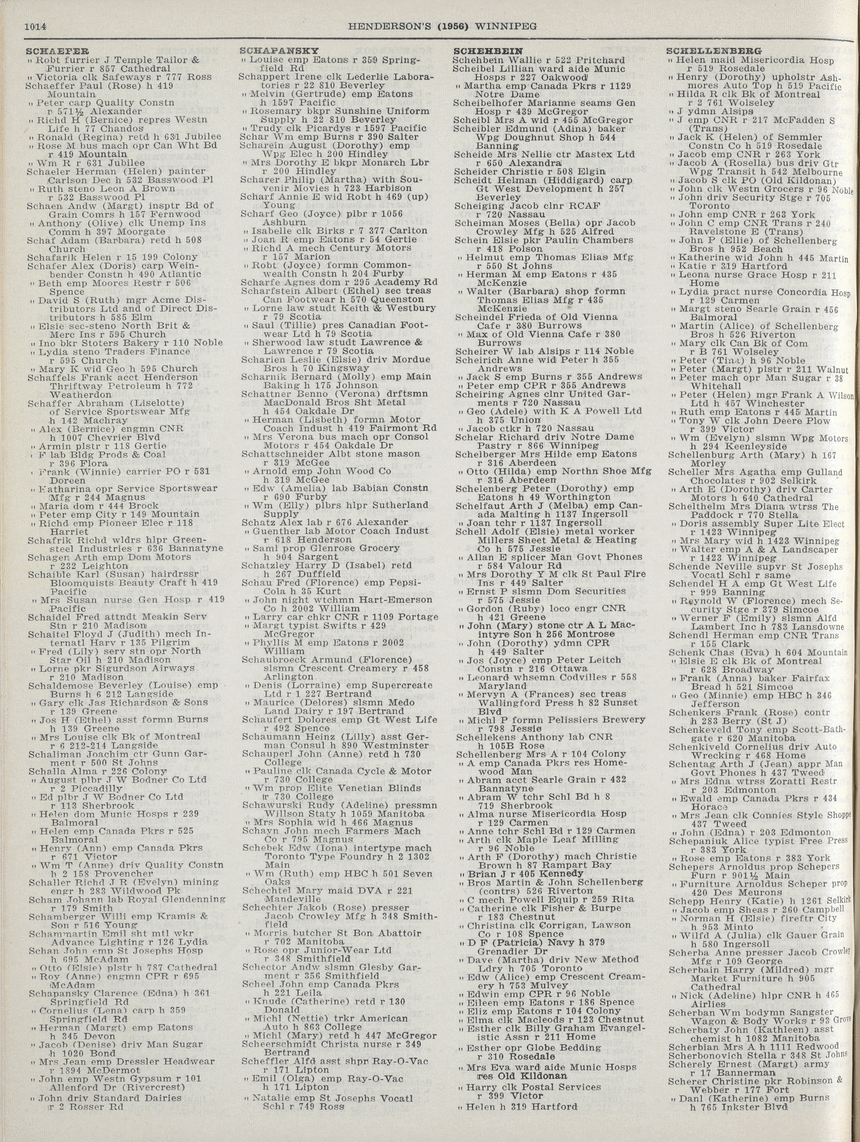 1014
HENDERSON'S (1956) WINNIPEG
SCHAEFER
" Robt furrier J Temple Tailor &
Furrier r 857 Cathedral
" Victoria clk Safeways r 777 Ross
Schaeffer Paul (Rose) h 419
Mountain
" Peter carp Quality Constn
r 571½ Alexander
" Richd H (Bernice) repres Westn
Life h 77 Chandos
" Ronald (Regina) retd h 631 Jubilee
" Rose M bus mach opr Can Wht Bd
r 419 Mountain
" Wm R r 631 Jubilee
Schaeler Herman (Helen) painter
Carlson Dec h 532 Basswood Pl
" Ruth steno Leon A Brown
r 532 Basswood Pl
Schaen Andw (Margt) insptr Bd of
Grain Comrs h 157 Fernwood
" Anthony (Olive) clk Unemp Ins
Comm h 397 Moorgate
Schaf Adam (Barbara) retd h 508
Church
Schafarik Helen r 15 199 Colony
Schafer Alex (Doris) carp Wein-
bender Constn h 490 Atlantic
" Beth emp Moores Restr r 506
Spence
" David S (Ruth) mgr Acme Dis-
tributors Ltd and of Direct Dis-
tributors h 585 Elm
" Elsie sec-steno North Brit &
Merc Ins r 595 Church
" Ino bkr Stoters Bakery r 110 Noble
" Lydia steno Traders Finance
r 595 Church
" Mary K wid Geo h 595 Church
Schaffels Frank acct Henderson
Thriftway Petroleum h 772
Weatherdon
Schaffer Abraham (Liselotte)
of Service Sportswear Mfg
h 142 Machray
" Alex (Bernice) engmn CNR
h 1007 Chevrier Blvd
" Armin plstr r 118 Gertie
" F lab Bldg Prods & Coal
r 396 Flora
" Frank (Winnie) carrier PO r 531
Doreen
" Katharina opr Service Sportswear
Mfg r 244 Magnus
" Maria dom r 444 Brock
" Peter emp City r 149 Mountain
" Richd emp Pioneer Elec r 118
Harriet
Schafrik Richd wldrs hlpr Green-
steel Industries r 636 Bannatyne
Schagen Arth emp Dom Motors
r 232 Leighton
Schaible Karl (Susan) hairdrssr
Bloomquists Beauty Craft h 419
Pacific
" Mrs Susan nurse Gen Hosp r 419
Pacific
Schaidel Fred attndt Meakin Serv
Stn r 210 Madison
Schaitel Floyd J (Judith) mech In-
ternatl Harv r 135 Pilgrim
" Fred (Lily) serv stn opr North
Star Oil h 210 Madison
" Lorne pkr Sigurdson Airways
r 210 Madison
Schaldemose Beverley (Louise) emp
Burns h 6 212 Langside
" Gary clk Jas Richardson & Sons
r 139 Greene
" Jos H (Ethel) asst formn Burns
h 139 Greene
" Mrs Louise clk Bk of Montreal
r 6 212-214 Langside
Schaliman Joachim ctr Gunn Gar-
ment r 500 St Johns
Schalla Alma r 226 Colony
" August plbr J W Bodner Co Ltd
r 2 Piccadilly
" Ed plbr J W Bodner Co Ltd
r 113 Sherbrook
" Helen dom Munic Hosps r 239
Balmoral
" Helen emp Canada Pkrs r 525
Balmoral
" Henry (Ann) emp Canada Pkrs
r 671 Victor
" Wm T (Anne) driv Quality Constn
h 2 158 Provencher
Schaller Richd J R (Evelyn) mining
engr h 283 Wildwood Pk
Scham Johann lab Royal Glendenning
r 179 Smith
Schamberger Willi emp Kramis &
Son r 516 Young
Schammartin Emil sht mtl wkr
Advance Lighting r 126 Lydia
Schan John emp St Josephs Hosp
h 695 McAdam
" Otto (Elsie) plstr h 787 Cathedral
" Roy (Anne) engmn CPR r 695
McAdam
Schapansky Clarence (Edna) h 361
Springfield Rd
" Cornelius (Lena) carp h 359
Springfield Rd
" Herman (Margt) emp Eatons
h 345 Devon
" Jacob (Denise) driv Man Sugar
h 1020 Bond
" Mrs Jean emp Dressler Headwear
r 1894 McDermot
" John emp Westn Gypsum r 101
Allenford Dr (Rivercrest)
" John driv Standard Dairies
r 2 Rosser Rd
SCHAPANSKY
" Louise emp Eatons r 359 Spring-
field Rd
Schappert Irene clk Lederlie Labora-
tories r 22 810 Beverley
" Melvin (Gertrude) emp Eatons
h 1597 Pacific
" Rosemary bkpr Sunshine Uniform
Supply h 22 810 Beverley
" Trudy clk Picardys r 1597 Pacific
Schar Wm emp Burns r 390 Salter
Scharein August (Dorothy) emp
Wpg Elec h 200 Hindley
" Mrs Dorothy E bkpr Monarch Lbr
r 200 Hindley
Scharer Philip (Martha) with Sou-
venir Movies h 723 Harbison
Scharf Annie E wid Robt h 469 (up)
Young
Scharf Geo (Joyce) plbr r 1056
Ashburn
" Isabelle clk Birks r 7 377 Carlton
" Joan R emp Eatons r 54 Gertie
" Richd A mech Century Motors
r 157 Marion
" Robt (Joyce) formn Common-
wealth Constn h 204 Furby
Scharfe Agnes dom r 295 Academy Rd
Scharfstein Albert (Ethel) sec treas
Can Footwear h 570 Queenston
" Lorne law studt Keith & Westbury
r 79 Scotia
" Saul (Tillie) pres Canadian Foot-
wear Ltd h 79 Scotia
" Sherwood law studt Lawrence &
Lawrence r 79 Scotia
Scharien Leslie (Elsie) driv Mordue
Bros h 70 Kingsway
Scharnik Bernard (Molly) emp Main
Baking h 175 Johnson
Schattner Benno (Verona) drftsmn
MacDonald Bros Sht Metal
h 454 Oakdale Dr
" Herman (Lisbeth) formn Motor
Coach Indust h 419 Fairmont Rd
" Mrs Verona bus mach opr Consol
Motors r 454 Oakdale Dr
Schattschneider Albt stone mason
r 319 McGee
" Arnold emp John Wood Co
h 319 McGee
" Edw (Amelia) lab Babian Constn
r 690 Furby
" Wm (Elly) plbrs hlpr Sutherland
Supply
Schatz Alex lab r 676 Alexander
" Guenther lab Motor Coach Indust
r 618 Henderson
" Saml prop Glenrose Grocery
h 904 Sargent
Schatzley Harry D (Isabel) retd
h 267 Duffield
Schau Fred (Florence) emp Pepsi-
Cola h 35 Kurt
" John night wtchmn Hart-Emerson
Co h 2002 William
" Larry car chkr CNR r 1109 Portage
" Margt typist Swifts r 429
McGregor
" Phyllis M emp Eatons r 2002
William
Schaubroeck Armund (Florence)
slsmn Crescent Creamery r 458
Arlington
" Denis (Lorraine) emp Supercreate
Ltd r 1 227 Bertrand
" Maurice (Delores) slsmn Medo
Land Dairy r 197 Bertrand
Schaufert Dolores emp Gt West Life
r 492 Spence
Schaumann Heinz (Lilly) asst Ger-
man Consul h 890 Westminster
Schauperl John (Anne) retd h 730
College
" Pauline clk Canada Cycle & Motor
r 730 College
" Wm prop Elite Venetian Blinds
r 730 College
Schawurski Rudy (Adeline) pressmn
Willson Staty h 1059 Manitoba
" Mrs Sophia wid h 466 Magnus
Schayn John mech Farmers Mach
Co r 795 Magnus
Schebek Edw (Iona) intertype mach
Toronto Type Foundry h 2 1302
Main
" Wm (Ruth) emp HBC h 501 Seven
Oaks
Schechtel Mary maid DVA r 221
Mandeville
Schechter Jakob (Rose) presser
Jacob Crowley Mfg h 348 Smith-
field
" Morris butcher St Bon Abattoir
r 702 Manitoba
" Rose opr Junior-Wear Ltd
r 348 Smithfield
Schector Andw slsmn Glesby Gar-
ment r 356 Smithfield
Scheel John emp Canada Pkrs
h 221 Leila
" Knude (Catherine) retd r 130
Donald
" Michl (Nettie) trkr American
Auto h 863 College
" Michl (Mary) retd h 447 McGregor
Scheerschmidt Christa nurse r 349
Bertrand
Scheffler Alfd asst shpr Ray-O-Vac
r 171 Lipton
" Emil (Olga) emp Ray-O-Vac
h 171 Lipton
" Natalie emp St Josephs Vocatl
Schl r 749 Ross
SCHEHBEIN
Schehbein Wallie r 522 Pritchard
Scheibel Lillian ward aide Munic
Hosps r 227 Oakwood
" Martha emp Canada Pkrs h 1129
Notre Dame
Scheibelhofer Marianne seams Gen
Hosp r 439 McGregor
Scheibl Mrs A wid r 455 McGregor
Scheibler Edmund (Adina) baker
Wpg Doughnut Shop h 544
Banning
Scheide Mrs Nellie ctr Mastex Ltd
r 650 Alexandra
Scheider Christie r 508 Elgin
Scheidt Helman (Hiddigard) carp
Gt West Development h 257
Beverley
Scheiging Jacob clnr RCAF
r 720 Nassau
Scheiman Moses (Bella) opr Jacob
Crowley Mfg h 525 Alfred
Schein Elsie pkr Paulin Chambers
r 418 Polson
" Helmut emp Thomas Elias Mfg
r 550 St Johns
" Herman M emp Eatons r 435
McKenzie
" Walter (Barbara) shop formn
Thomas Elias Mfg r 435
McKenzie
Scheindel Frieda of Old Vienna
Cafe r 380 Burrows
" Max of Old Vienna Cafe r 380
Burrows
Scheirer W lab Alsips r 114 Noble
Scheirich Anne wid Peter h 355
Andrews
" Jack S emp Burns r 355 Andrews
" Peter emp CPR r 355 Andrews
Scheiring Agnes clnr United Gar-
ments r 720 Nassau
" Geo (Adele) with K A Powell Ltd
h 375 Union
" Jacob ctkr h 720 Nassau
Schelar Richard driv Notre Dame
Pastry r 866 Winnipeg
Schelberger Mrs Hilde emp Eatons
r 316 Aberdeen
" Otto (Hilda) emp Northn Shoe Mfg
r 316 Aberdeen
Schelenberg Peter (Dorothy) emp
Eatons h 49 Worthington
Schelfaut Arth J (Melba) emp Can-
ada Malting h 1137 Ingersoll
" Joan tchr r 1137 Ingersoll
Schell Adolf (Elsie) metal worker
Millers Sheet Metal & Heating
Co h 575 Jessie
" Allan E splicer Man Govt Phones
r 584 Valour Rd
" Mrs Dorothy Y M clk St Paul Fire
Ins r 449 Salter
" Ernst P slsmn Dom Securities
r 575 Jessie
" Gordon (Ruby) loco engr CNR
h 421 Greene
" John (Mary) stone ctr A L Mac-
intyre Son h 256 Montrose
" John (Dorothy) ydmn CPR
h 449 Salter
" Jos (Joyce) emp Peter Leitch
Constn r 216 Ottawa
" Leonard whsemn Codvilles r 558
Maryland
" Mervyn A (Frances) sec treas
Wallingford Press h 82 Sunset
Blvd
" Michl P formn Pelissiers Brewery
r 798 Jessie
Schellekens Anthony lab CNR
h 105B Rose
Schellenberg Mrs A r 104 Colony
" A emp Canada Pkrs res Home-
wood Man
" Abram acct Searle Grain r 432
Bannatyne
" Abram W tchr Schl Bd h 8
719 Sherbrook
" Alma nurse Misericordia Hosp
r 129 Carmen
" Anne tchr Schl Bd r 129 Carmen
" Arth clk Maple Leaf Milling
r 96 Noble
" Arth F (Dorothy) mach Christie
Brown h 87 Rampart Bay
" Brian J r 405 Kennedy
" Bros Martin & John Schellenberg
(contrs) 526 Riverton
" C mech Powell Equip r 259 Rita
" Catherine clk Fisher & Burpe
r 183 Chestnut
" Christina clk Corrigan, Lawson
Co r 108 Spence
" D F (Patricia) Navy h 379
Grenadier Dr
" Dave (Martha) driv New Method
Ldry h 705 Toronto
" Edw (Alice) emp Crescent Cream-
ery h 753 Mulvey
" Edwin emp CPR r 96 Noble
" Eileen emp Eatons r 186 Spence
" Eliz emp Eatons r 104 Colony
" Elma clk Macleods r 123 Chestnut
" Esther clk Billy Graham Evangel-
istic Assn r 211 Home
" Esther opr Globe Bedding
r 310 Rosedale
" Mrs Eva ward aide Munic Hosps
res Old Kildonan
" Harry clk Postal Services
r 399 Victor
" Helen h 319 Hartford
SCHELLENBERG
" Helen maid Misericordia Hosp
r 519 Rosedale
" Henry (Dorothy) upholstr Ash-
mores Auto Top h 519 Pacific
" Hilda R clk Bk of Montreal
r 2 761 Wolseley
" J ydmn Alsips
" J emp CNR r 217 McFadden S
(Trans)
" Jack K (Helen) of Semmler
Constn Co h 519 Rosedale
" Jacob emp CNR r 263 York
" Jacob A (Rosella) bus driv Gtr
Wpg Transit h 542 Melbourne
" Jacob S clk PO (Old Kildonan)
" John clk Westn Grocers r 96 Noble
" John driv Security Stge r 705
Toronto
" John emp CNR r 263 York
" John C emp CNR Trans r 240
Ravelstone E (Trans)
" John P (Ellie) of Schellenberg
Bros h 952 Beach
" Katherine wid John h 445 Martin
" Katie r 319 Hartford
" Leona nurse Grace Hosp r 211
Home
" Lydia pract nurse Concordia Hosp
r 129 Carmen
" Margt steno Searle Grain r 456
Balmoral
" Martin (Alice) of Schellenberg
Bros h 526 Riverton
" Mary clk Can Bk of Com
r B 761 Wolseley
" Peter (Tina) h 96 Noble
" Peter (Margt) plstr r 211 Walnut
" Peter mach opr Man Sugar r 38
Whitehall
" Peter (Helen) mgr Frank A Wilson
Ltd h 457 Winchester
" Ruth emp Eatons r 445 Martin
" Tony W clk John Deere Plow
r 399 Victor
" Wm (Evelyn) slsmn Wpg Motors
h 294 Keenleyside
Schellenburg Arth (Mary) h 167
Morley
Scheller Mrs Agatha emp Gulland
Chocolates r 902 Selkirk
" Arth E (Dorothy) driv Carter
Motors h 640 Cathedral
Schelthelm Mrs Diana wtrss The
Paddock r 770 Stella
" Doris assembly Super Lite Elect
r 1423 Winnipeg
" Mrs Mary wid h 1423 Winnipeg
" Walter emp A & A Landscaper
r 1423 Winnipeg
Schende Neville supvr St Josephs
Vocatl Schl r same
Schendel H A emp Gt West Life
r 999 Banning
" Reynold W (Florence) mech Se-
curity Stge r 379 Simcoe
" Werner F (Emily) slsmn Alfd
Lambert Inc h 783 Lansdowne
Schendl Herman emp CNR Trans
r 155 Clark
Schenk Chas (Eva) h 604 Mountain
" Elsie E clk Bk of Montreal
r 628 Broadway
" Frank (Anna) baker Fairfax
Bread h 521 Simcoe
" Geo (Minnie) emp HBC h 346
Jefferson
Schenkers Frank (Rose) contr
h 283 Berry (St J)
Schenkeveld Tony emp Scott-Bath-
gate r 620 Manitoba
Schenkiveld Cornelius driv Auto
Wrecking r 468 Home
Schentag Arth J (Jean) appr Man
Govt Phones h 437 Tweed
" Mrs Edna wtrss Zoratti Restr
r 203 Edmonton
" Ewald emp Canada Pkrs r 434
Horace
" Mrs Jean clk Connies Style Shoppe
437 Tweed
" John (Edna) r 203 Edmonton
Schepaniuk Alice typist Free Press
r 383 York
" Rose emp Eatons r 383 York
Schepers Arnoldus prop Schepers
Furn r 901½ Main
" Furniture Arnoldus Scheper prop
420 Des Meurons
Schepp Henry (Katie) h 1261 Selkirk
" Jacob emp Sheas r 260 Campbell
" Norman H (Elsie) fireftr City
h 953 Minto
" Wilfd A (Julia) clk Gauer Grain
h 580 Ingersoll
Scherba Anne presser Jacob Crowley
Mfg r 109 George
Scherbain Harry (Mildred) mgr
Market Furniture h 905
Cathedral
" Nick (Adeline) hlpr CNR h 465
Airlies
Scherban Wm bodymn Sangster
Wagon & Body Works r 92 Grove
Scherbaty John (Kathleen) asst
chemist h 1082 Manitoba
Scherbian Mrs A h 1111 Redwood
Scherbonovich Stella r 348 St Johns
Scherely Ernest (Margt) army
r 17 Bannerman
Scherer Christine pkr Robinson &
Webber r 177 Fort
" Danl (Katherine) emp Burns
h 765 Inkster Blvd